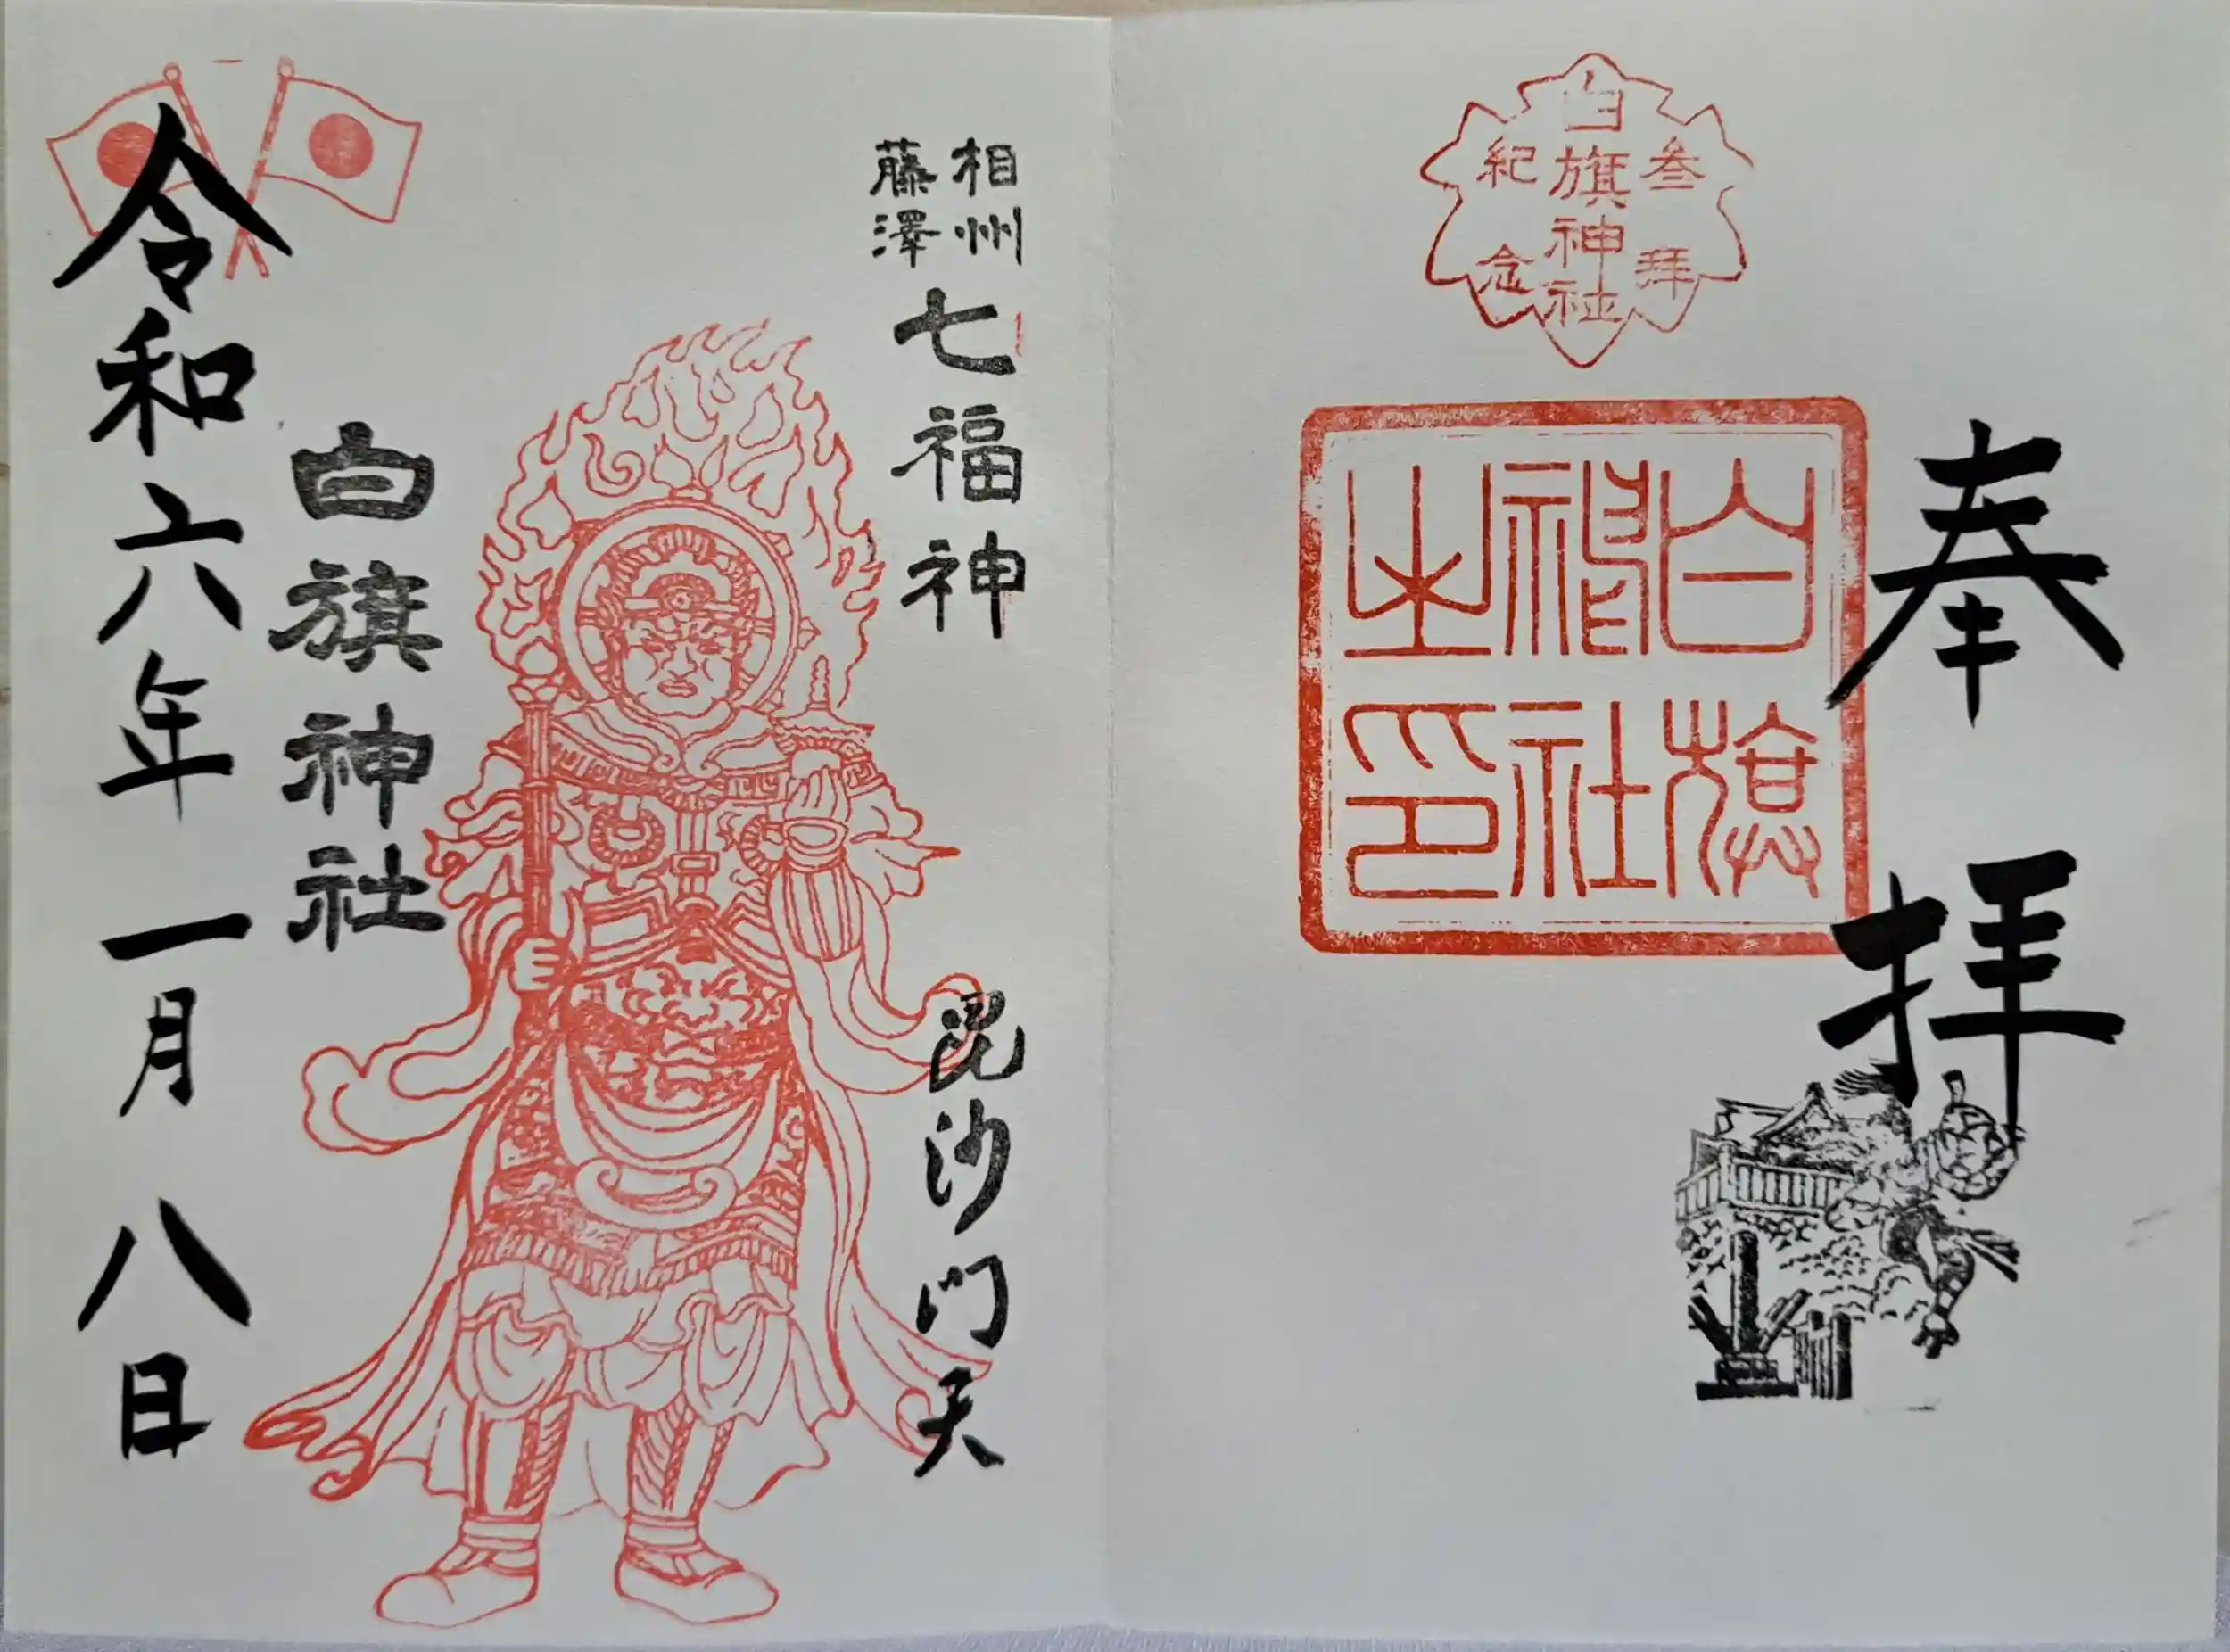 奉拝
叁拝
白旗神社
紀念
白旗
神社
之印
相州
藤澤
七福神
毘沙门天
白旗神社
令和六年一月八日